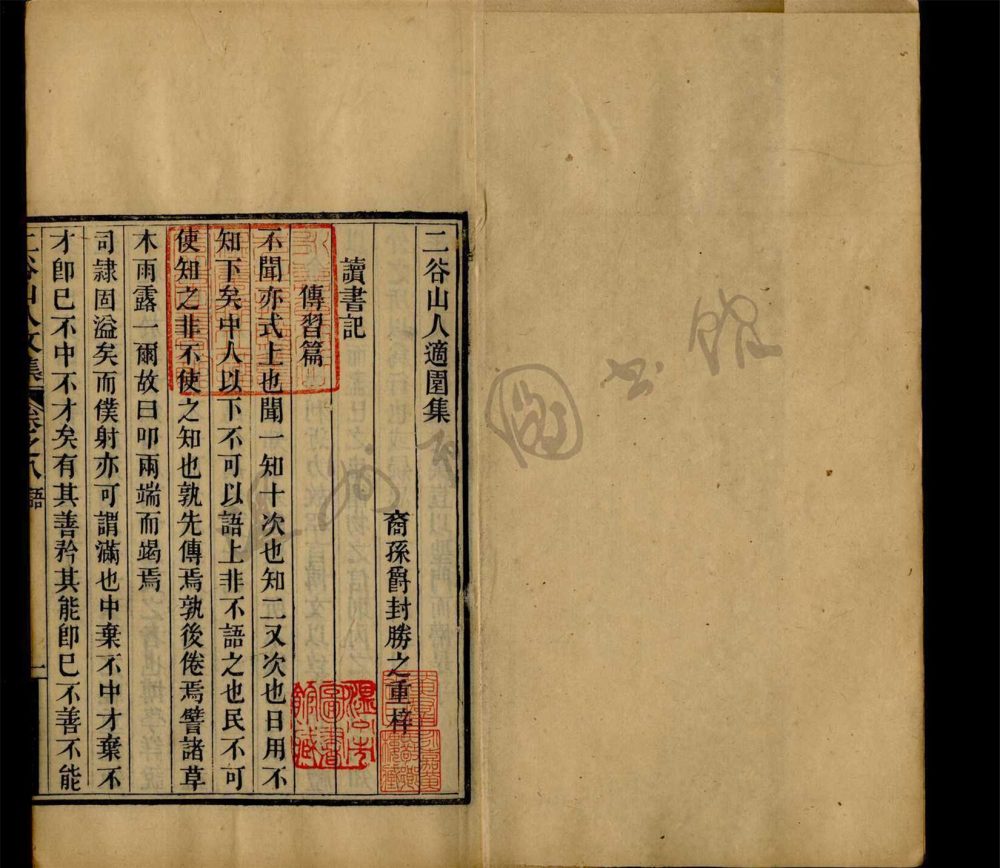 二谷山人適園集
裔孫爵封勝之重梓
讀書記
傳習篇
不聞亦式上也聞一知十次也知二又次也日用不
知下矣中人以下不可以語上非不語之也民不可
使知之非不使之知也孰先傳焉孰後倦焉譬諸草
木雨露一爾故曰叩兩端而竭焉
司隸固溢矣而僕射亦可謂滿也中棄不中才棄不
才卽已不中不才矣有其善矜其能卽已不善不能
二谷山人文集 卷之八 語 一
溫州市圖書館藏
圖書館